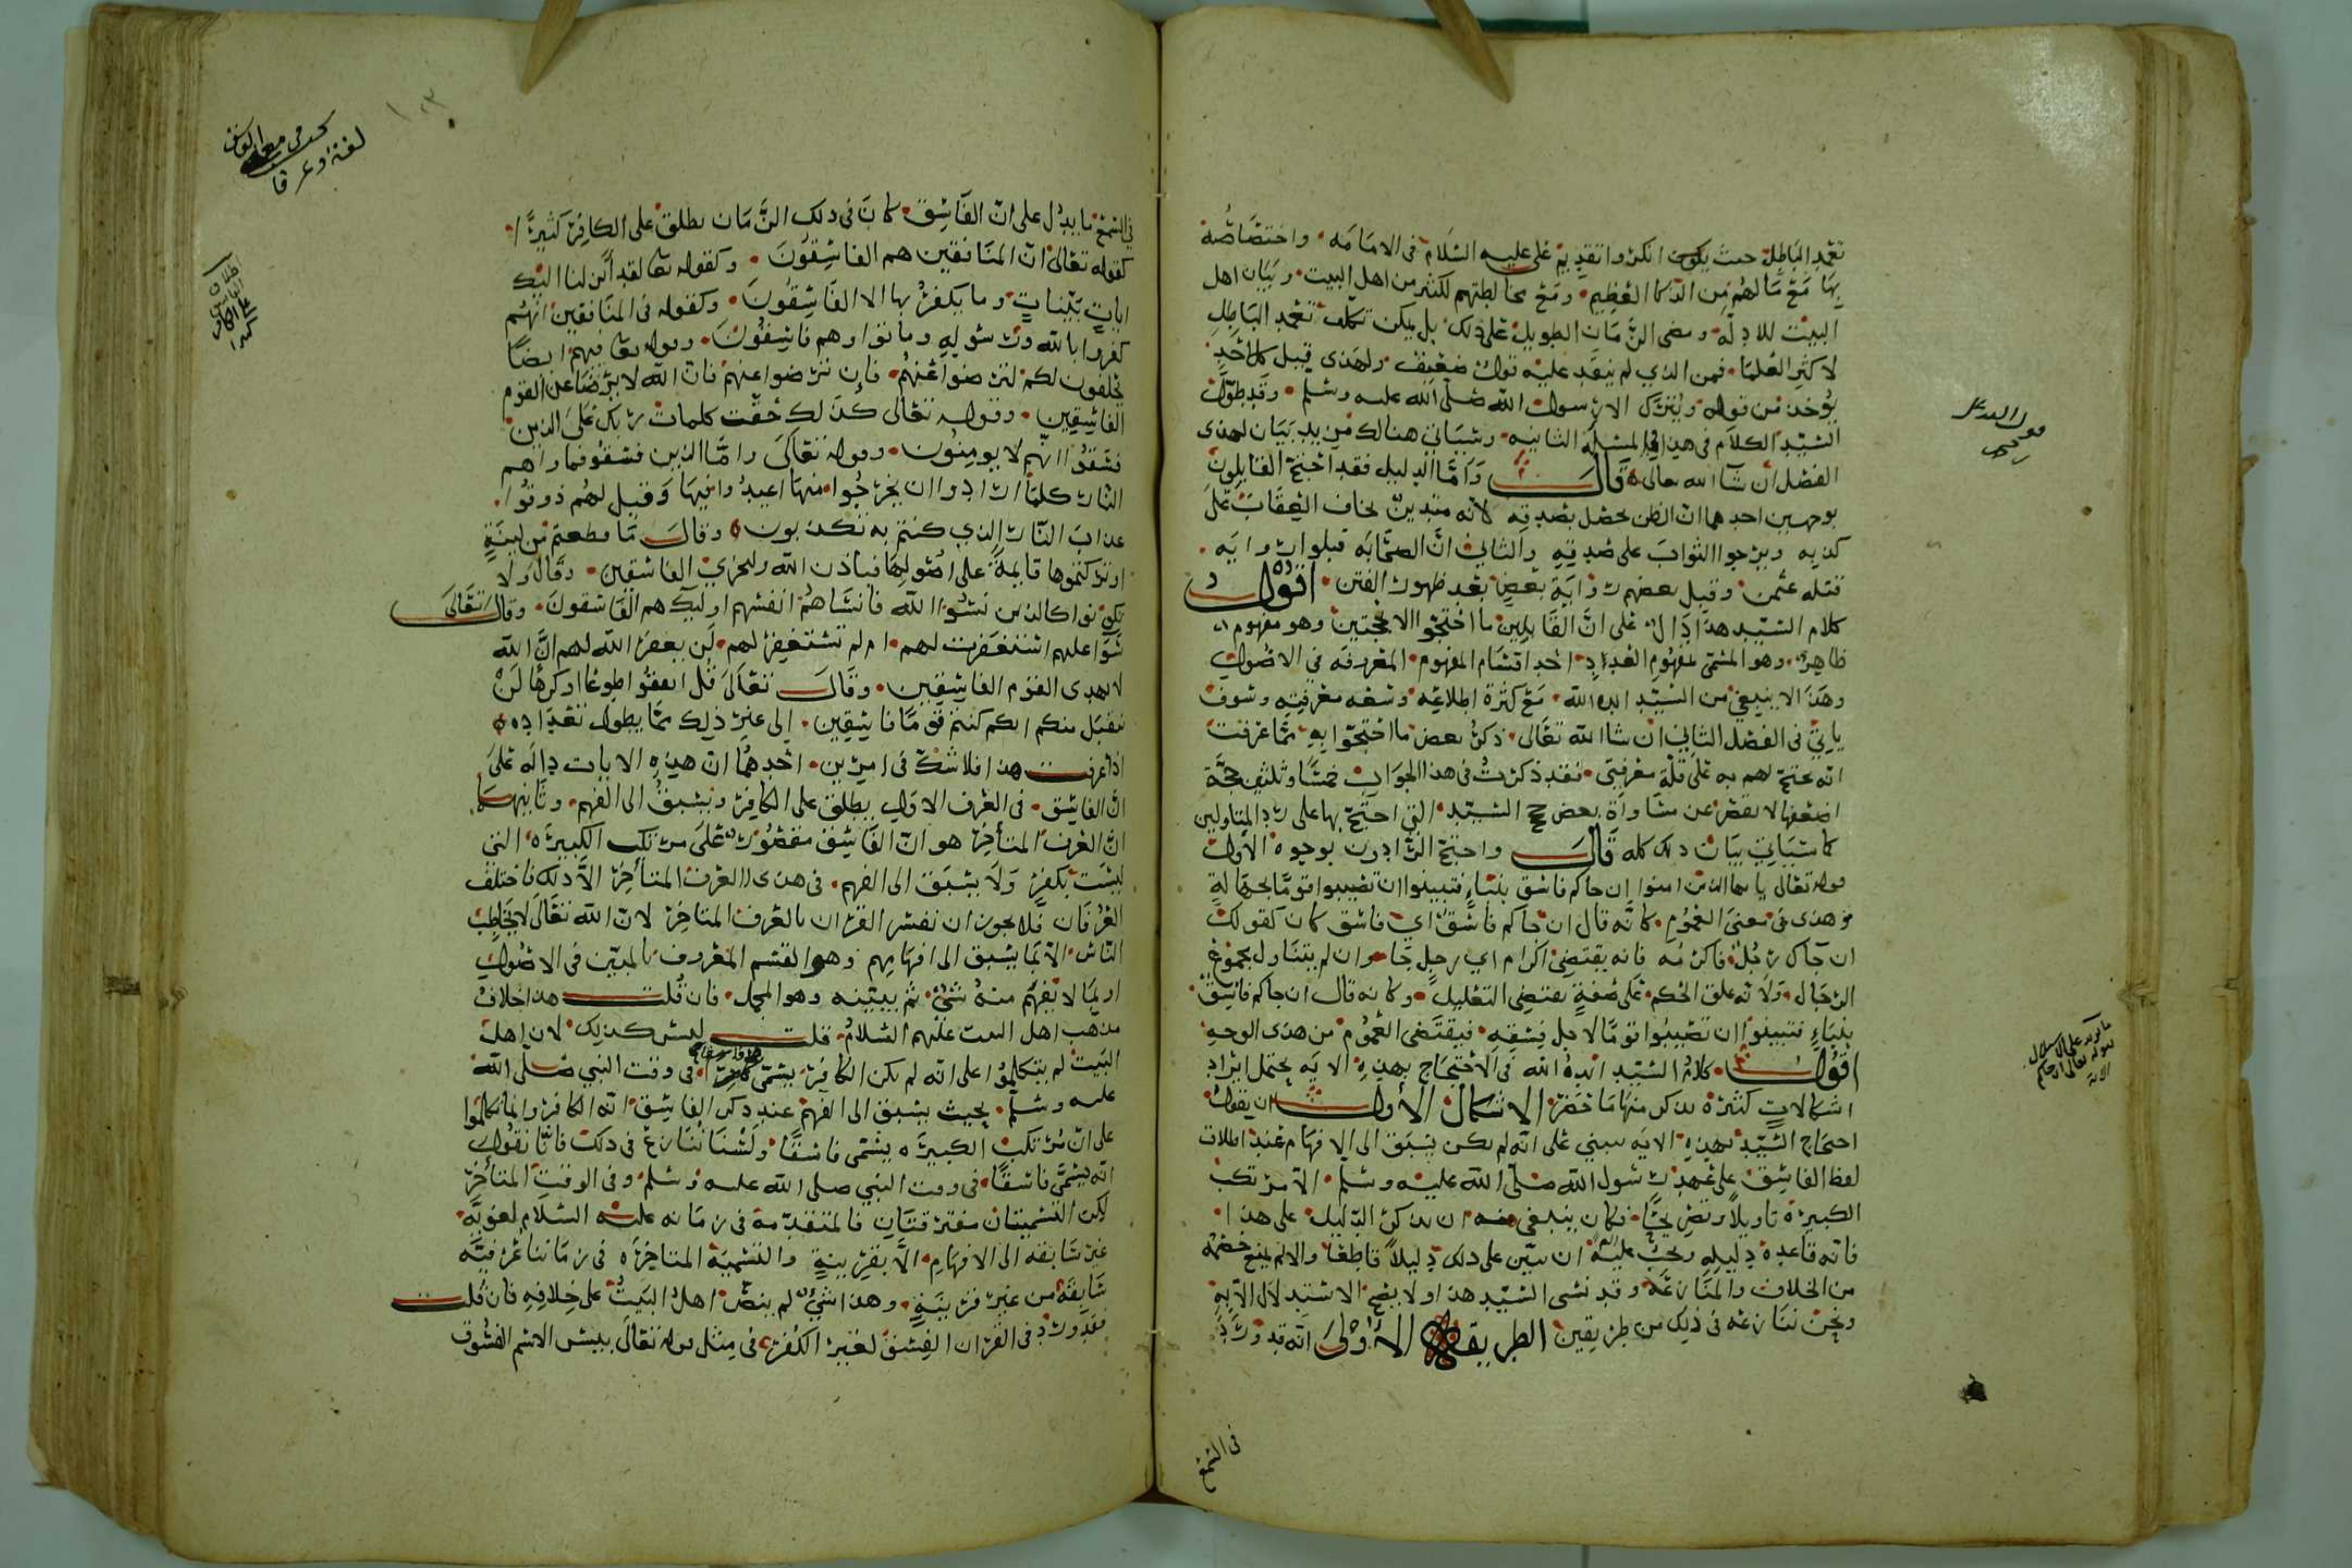 تعمد الباطل حيث يكون انكروا تقديم علي عليه السلام في الامامه واختصاصه
بها مع مالهم من الذكا العظيم ومع مخالطتهم لكثير من اهل البيت وبيان اهل
البيت للادلة ومضي الزمان الطويل على ذلك بل يمكن تكلف تعمد الباطل
لاكثر العلما فمن الذي لم ينقد عليه قول ضعيف ولهذى قيل كل احد
يوخذ من قوله ويترك الا رسول الله صلى الله عليه وسلم وقد طول
السيد الكلام في هذا في المسئلة الثانيه وسياتي هنالك مزيد بيان لهذى
الفصل ان شآ الله تعالى قال واما الدليل فقد احتج القايلون
بوجهين احدهما ان الظن يحصل بصدقه لانه متدين يخاف العقاب على
كذبه ويرجوا الثواب على صدقه والثاني ان الصحابه قبلوا رواية
قتله عثمن وقبل بعضهم رواية بعض بعد ظهور الفتن اقول
كلام السيد هذا دال على ان القايلين ما احتجوا الا بحجتين وهو مفهوم
ظاهر وهو المسمى بمفهوم العدد احد اقسام المفهوم المعروفه في الاصول
وهذا لا ينبغي من السيد ايده الله مع كثرة اطلاعه وسعه معرفته وسوف
ياتي في الفصل الثاني ان شا الله تعالى ذكر بعض ما احتجوا به مما عرفت
انه يحتج لهم به على قلة معرفتي فقد ذكرت في هذا الجواب خمسا وثلثين حجة
اضعفها لا يقصر عن مساواة بعض حجج السيد التي احتج بها على رد المتاولين
كما سياتي بيان ذلك كله قال واحتج الرادون بوجوه الاول
قوله تعالى يا ايها الذين امنوا ان جاكم فاسق بنباء فتبينوا ان تصيبوا قوما بجهالة
وهذى في معنى العموم كانه قال ان جاكم فاسق اي فاسق كان كقولك
ان جاك رجل فاكرمه فانه يقتضي اكرام اي رجل جا وان لم يتناول مجموع
الرجال ولانه علق الحكم على صفة تقتضي التعليل وكانه قال ان جاكم فاسق
بنباء فتبينوا ان تصيبوا قوما لاجل فسقه فيقتضي العموم من هذى الوجه
اقول كلام السيد ايده الله في الاحتجاج بهذه الايه يحتمل ايراد
اشكالات كثيره نذكر منها ما حضر الاشكال الاول ان يقول
احتجاج السيد بهذه الايه مبني على انه لم يكن يسبق الى الافهام عند اطلاق
لفظ الفاسق على عهد رسول الله صلى الله عليه وسلم الا مرتكب
الكبيرة تاويلا وتصريحا فكان ينبغي منه ان يذكر الدليل على هذا
فانه قاعدة دليله ويجب عليه ان يبين على ذلك دليلا قاطعا والا لم يمنع خصمه
من الخلاف والمنازعه وقد نسى السيد هذا ولا يصح الاستدلال الا به
ونحن ننازعه في ذلك من طريقين الطريق الاولى انه قد ورد
في السمع
قول السيد
ما يورد على الاستدلال
بقوله تعالى ان جاكم
الاية
في السمع ما يدل على ان الفاسق كان في ذلك الزمان يطلق على الكافر كثيرا
كقوله تعالى ان المنافقين هم الفاسقون وكقوله تعا لقد انزلنا اليك
ايات بينات وما يكفر بها الا الفاسقون وكقوله في المنافقين انهم
كفروا بالله ورسوله وماتوا وهم فاسقون وقوله تعا فيهم ايضا
يحلفون لكم لترضوا عنهم فان ترضوا عنهم فان الله لا يرضا عن القوم
الفاسقين وقوله تعالى كذلك حقت كلمات ربك على الذين
فسقوا انهم لا يومنون وقوله تعالى واما الذين فسقوا فماواهم
النار كلما ارادوا ان يخرجوا منها اعيدوا فيها وقيل لهم ذوقوا
عذاب النار الذي كنتم به تكذبون وقال ما قطعتم من لينة
او تركتموها قايمة على اصولها فباذن الله وليخزي الفاسقين وقال ولا
تكونوا كالذين نسوا الله فانساهم انفسهم اوليك هم الفاسقون وقال تعالى
سوا عليهم استغفرت لهم ام لم تستغفر لهم لن يغفر الله لهم ان الله
لا يهدى القوم الفاسقين وقال تعالى قل انفقوا طوعا او كرها لن
يتقبل منكم انكم كنتم قوما فاسقين الى غير ذلك مما يطول تعداده
اذا عرفت هذا فلا شك في امرين احدهما ان هذه الايات دالة على
ان الفاسق في العرف الاول يطلق على الكافر ويسبق الى الفهم وثانيهما
ان العرف المتأخر هو ان الفاسق مقصور على مرتكب الكبيره التي
ليست بكفر ولا يسبق الى الفهم في هذى العرف المتأخر الا ذلك فاختلف
العرفان فلا يجوز ان نفسر القران بالعرف المتاخر لان الله تعالى لا يخاطب
الناس الا بما يسبق الى افهامهم وهو القسم المعروف بالمبين في الاصول
او بما لا يفهم منه شئ ثم يبينه وهو المجمل فان قلت هذا خلاف
مذهب اهل البيت عليهم السلام قلت ليس كذلك لان اهل
البيت لم يتكلموا على انه لم يكن الكافر يسمى فاسقا في وقت النبي صلى الله
عليه وسلم بحيث يسبق الى الفهم عند ذكر الفاسق انه الكافر وانما تكلموا
على ان مرتكب الكبيره يسمى فاسقا ولسنا ننازع في ذلك فانا نقول
انه يسمى فاسقا في وقت النبي صلى الله عليه وسلم وفي الوقت المتأخر
لكن التسميتان مفترقتان فالمتقدمة في زمانه عليه السلام لغوية
غير سابقه الى الافهام الا بقرينة والتسمية المتاخره في زماننا عرفية
سابقة من غير قرينة وهذا شئ لم ينص اهل البيت على خلافه فان قلت
فقد ورد في القران الفسق لغير الكفر في مثل قوله تعالى بيس الاسم الفسوق
لغة وعرفا
اطلاق
الفاسق
على الكافر
كثيرا